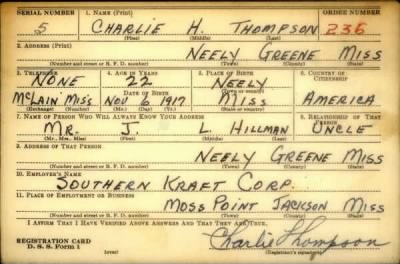 SERIAL NUMBER 1. NAME (Print) ORDER NUMBER
5 CHARLIE H. THOMPSON 236
(First) (Middle) (Last)
2. ADDRESS (Print)
NEELY GREENE MISS
(Number and street or R. F. D. number) (Town) (County) (State)
3. TELEPHONE 4. AGE IN YEARS 5. PLACE OF BIRTH 6. COUNTRY OF CITIZENSHIP
NONE 22 NEELY
DATE OF BIRTH (Town or county)
McLAIN MISS NOV 6 1917 MISS AMERICA
(Exchange) (Number) (Mo.) (Day) (Yr.) (State or country)
7. NAME OF PERSON WHO WILL ALWAYS KNOW YOUR ADDRESS 8. RELATIONSHIP OF THAT PERSON
MR. J. L. HILLMAN UNCLE
(Mr., Mrs., Miss) (First) (Middle) (Last)
9. ADDRESS OF THAT PERSON
NEELY GREENE MISS
(Number and street or R. F. D. number) (Town) (County) (State)
10. EMPLOYER'S NAME
SOUTHERN KRAFT CORP.
11. PLACE OF EMPLOYMENT OR BUSINESS
MOSS POINT JACKSON MISS
(Number and street or R. F. D. number) (Town) (County) (State)
I AFFIRM THAT I HAVE VERIFIED ABOVE ANSWERS AND THAT THEY ARE TRUE.
REGISTRATION CARD Charlie Thompson
D. S. S. Form 1 (over) (Registrant's signature)